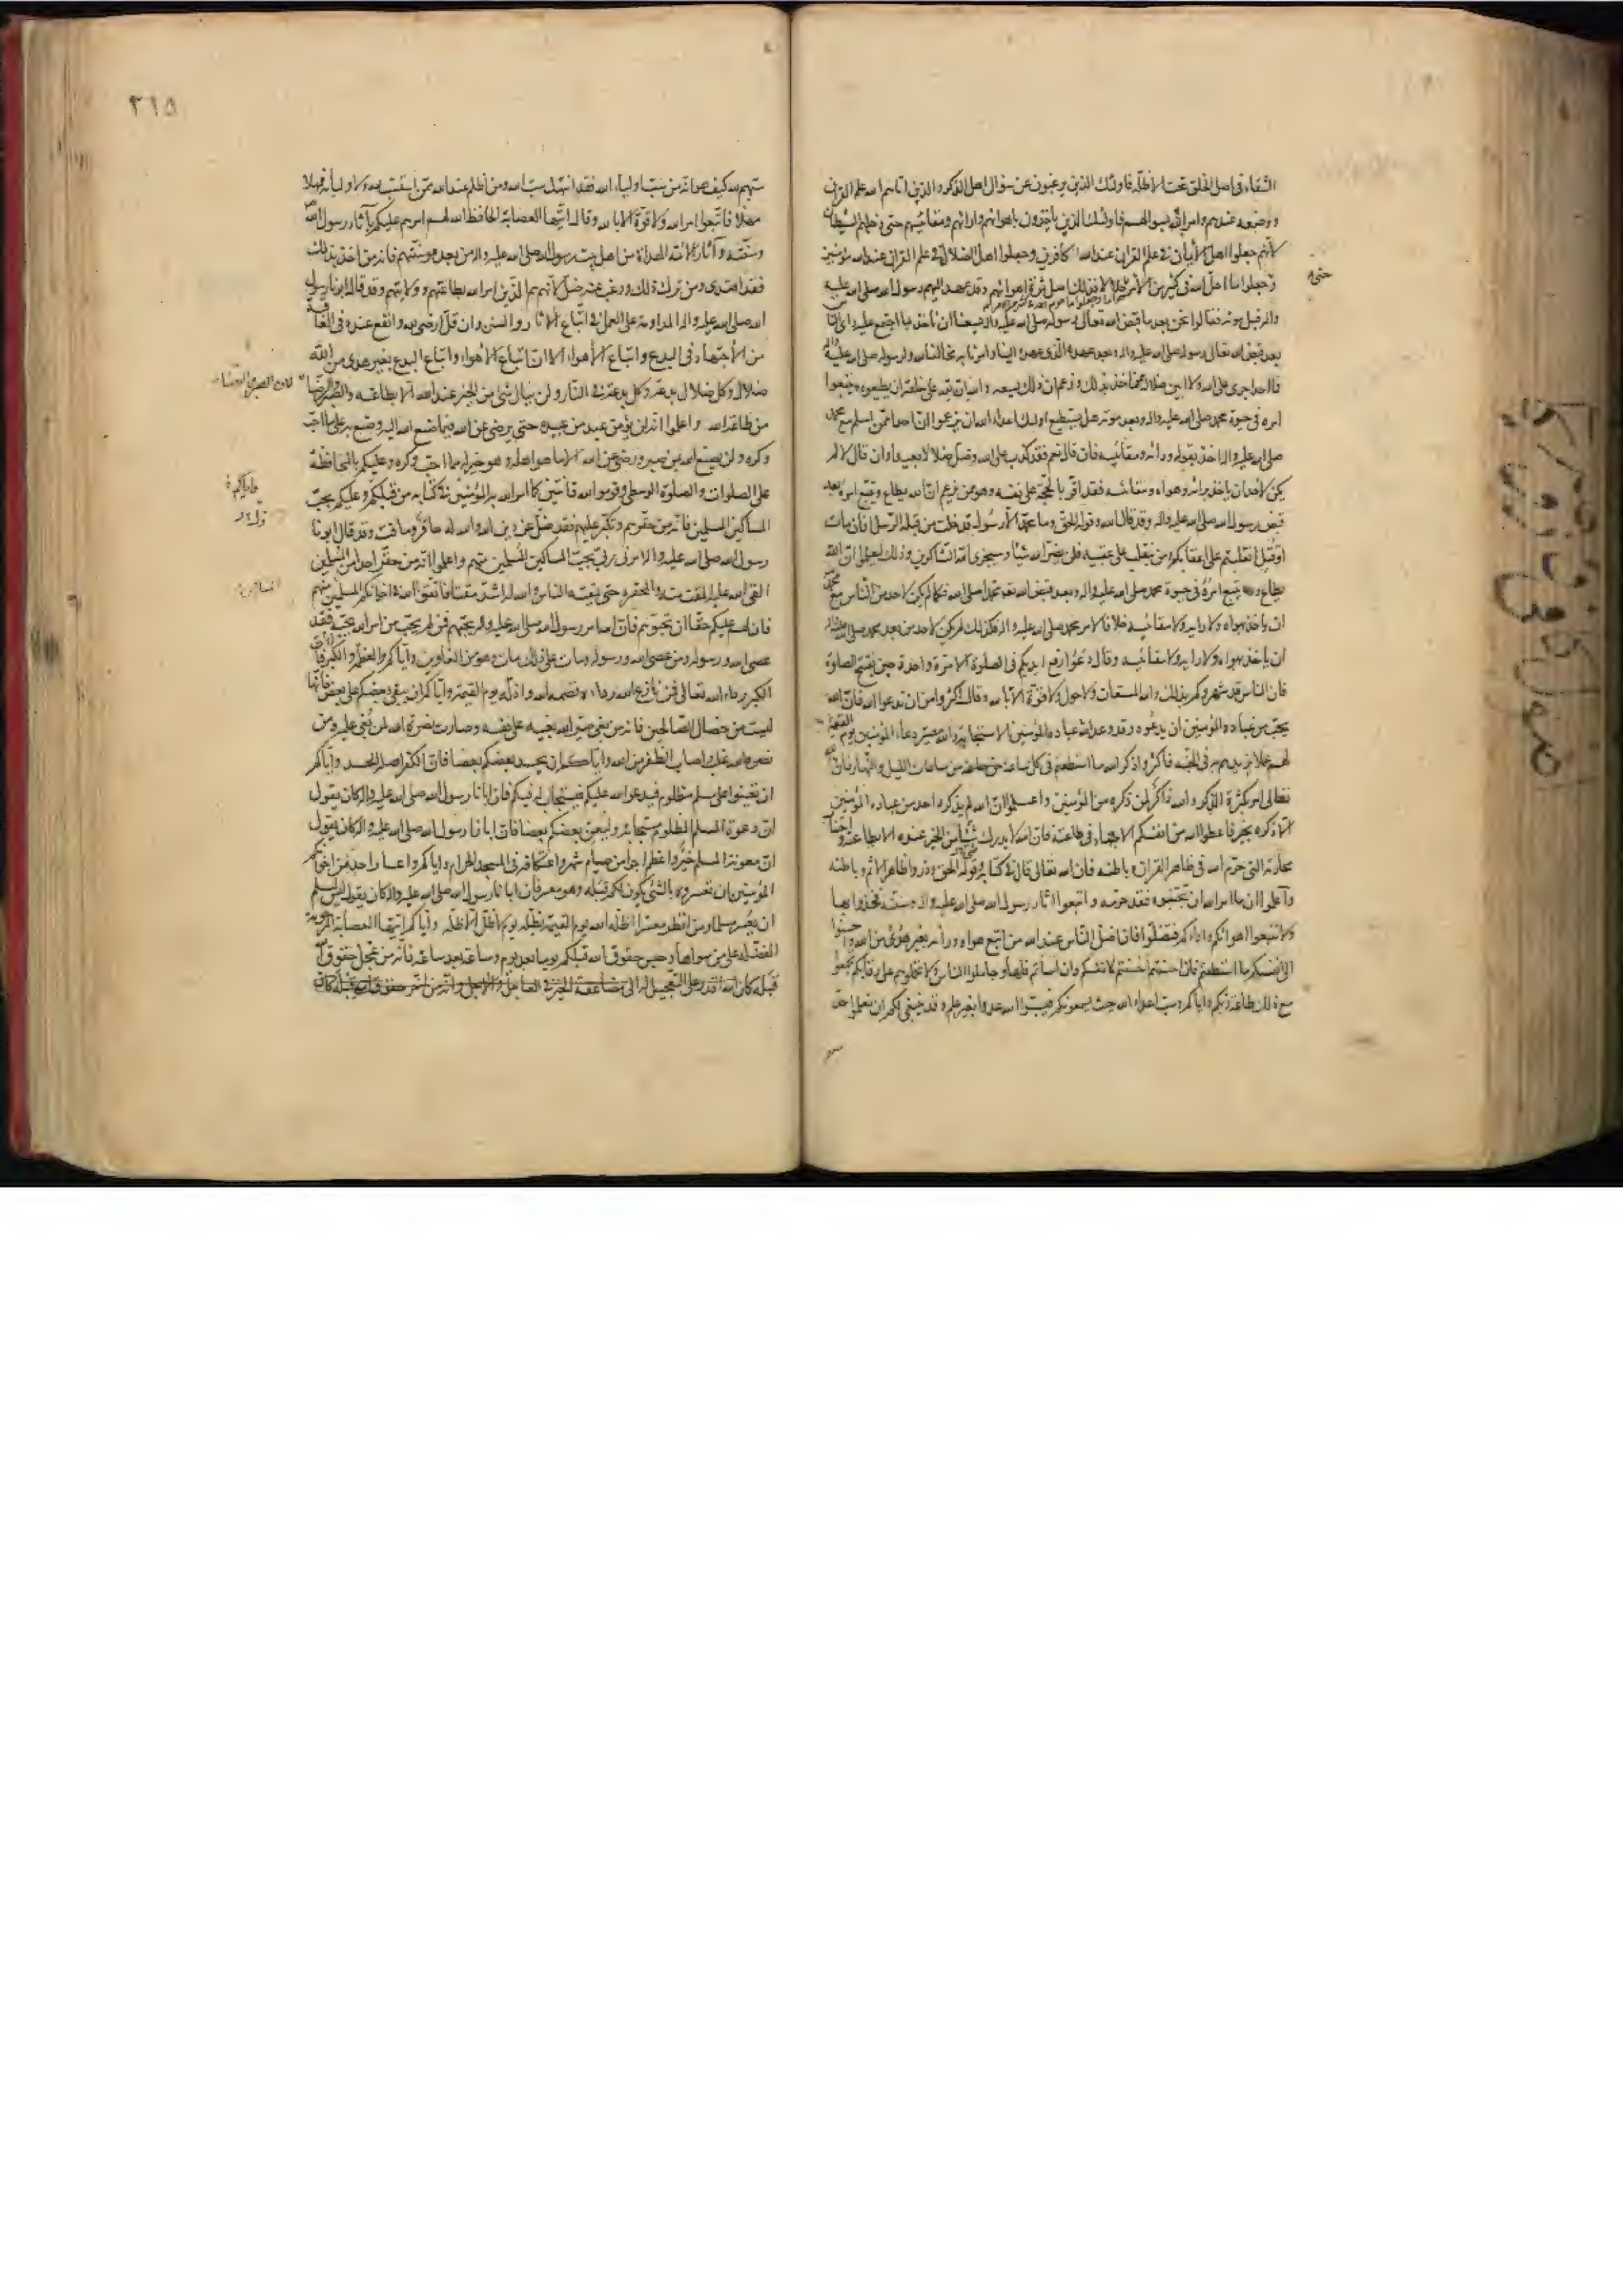 الشقاء في اصل الخلق تحت الاظلة فاولئك الذين يرغبون عن سؤال اهل الذكر والذين اتاهم الله علم القران
ووضعه عندهم وامر الله بسؤالهم فاولئك الذين ياخذون باهوائهم وارائهم ومقائيسهم حتى دخلهم الشيطان
لانهم جعلوا اهل الايمان في علم القران عند الله كافرين وجعلوا اهل الضلال في علم القران عند الله مؤمنين
وجعلوا ما احل الله في كثير من الامر حراما فذلك اصل ثمرة اهوائهم وقد عهد اليهم رسول الله صلى الله عليه
واله قبل موته فقالوا نحن بعد ما قبض الله تعالى رسوله صلى الله عليه واله يسعنا ان ناخذ بما اجتمع عليه راى الناس
بعد قبض الله تعالى رسوله صلى الله عليه واله وبعد عهده الذي عهده الينا وامرنا به مخالفا لله ولرسوله صلى الله عليه واله
فما احد اجرى على الله ولا ابين ضلالة ممن اخذ بذلك وزعم ان ذلك يسعه والله ان لله على خلقه ان يطيعوه ويتبعوا
امره في حيوة محمد صلى الله عليه واله وبعد موته هل يستطيع اولئك اعداء الله ان يزعموا ان احدا ممن اسلم مع محمد
صلى الله عليه واله اخذ بقوله ورائه ومقائيسه فان قال نعم فقد كذب على الله وضل ضلالا بعيدا وان قال لا لم
يكن لاحد ان ياخذ برائه وهواه ومقائسه فقد اقر بالحجة على نفسه وهو ممن يزعم ان الله يطاع ويتبع امره بعد
قبض رسول الله صلى الله عليه واله وقد قال الله وقوله الحق وما محمد الا رسول قد خلت من قبله الرسل افان مات
او قتل انقلبتم على اعقابكم ومن ينقلب على عقبيه فلن يضر الله شيئا وسيجزى الله الشاكرين وذلك ليعلموا ان الله
يطاع ويتبع امره في حيوة محمد صلى الله عليه واله وبعد قبض الله محمدا صلى الله عليه واله فكما لم يكن لاحد من الناس مع محمد
ان ياخذ بهواه ولا رايه ولا مقائيسه خلافا لامر محمد صلى الله عليه واله فكذلك لم يكن لاحد من بعد محمد صلى الله عليه واله
ان ياخذ بهواه ولا رايه ولا مقائيسه وقال دعوا رفع ايديكم في الصلوة الا مرة واحدة حين يفتتح الصلوة
فان الناس قد شهروكم بذلك والله المستعان ولا حول ولا قوة الا بالله وقال اكثروا من ان تدعوا الله فان الله
يحب من عباده المؤمنين ان يدعوه وقد وعد الله عباده المؤمنين الاستجابة والله مصير دعاء المؤمنين يوم القيمة
لهم عملا يزيدهم به في الجنة فاكثروا ذكر الله ما استطعتم في كل ساعة من ساعات الليل والنهار فان الله
تعالى امر بكثرة الذكر له والله ذاكر لمن ذكره من المؤمنين واعلموا ان الله لم يذكره احد من عباده المؤمنين
الا ذكره بخير فاعطوا الله من انفسكم الاجتهاد في طاعته فان الله لا يدرك شئ من الخير عنده الا بطاعته واجتناب
محارمه التي حرم الله في ظاهر القران وباطنه فان الله تعالى قال في كتابه وقوله الحق وذروا ظاهر الاثم وباطنه
واعلموا ان ما امر الله ان تجتنبوه فقد حرمه واتبعوا اثار رسول الله صلى الله عليه واله وسنته فخذوا بها
ولا تتبعوا اهوائكم واراءكم فتضلوا فان اضل الناس عند الله من اتبع هواه ورأيه بغير هدى من الله واحسنوا
الى انفسكم ما استطعتم فان احسنتم احسنتم لانفسكم وان اسأتم فلها وجاملوا الناس ولا تحملوهم على رقابكم تجمعوا
مع ذلك طاعة ربكم واياكم وسب اعداء الله حيث يسمعونكم فيسبوا الله عدوا بغير علم وقد ينبغي لكم ان تعلموا حد
٢١٥
سبهم لله كيف هو انه من سب اولياء الله فقد انتهك سب الله ومن اظلم عند الله ممن استسب لله ولاوليائه فمهلا
مهلا فاتبعوا امر الله ولا قوة الا بالله وقال ايتها العصابة الحافظ الله لهم امرهم عليكم بآثار رسول الله
وسنته وآثار الائمة الهداة من اهل بيت رسول الله صلى الله عليه واله من بعده وسنتهم فانه من اخذ بذلك
فقد اهتدى ومن ترك ذلك ورغب عنه ضل لانهم هم الذين امر الله بطاعتهم وولايتهم وقد قال ابونا رسول
الله صلى الله عليه واله المداومة على العمل في اتباع الاثار والسنن وان قل ارضى لله وانفع عنده في العاقبة
من الاجتهاد في البدع واتباع الاهواء الا ان اتباع الاهواء واتباع البدع بغير هدى من الله
ضلال وكل ضلال بدعة وكل بدعة في النار ولن ينال شئ من الخير عند الله الا بطاعته والصبر والرضا
من طاعة الله واعلموا انه لن يؤمن عبد من عبيده حتى يرضى عن الله فيما صنع الله اليه وصنع به على ما احب
وكره ولن يصنع الله بمن صبر ورضى عن الله الا ما هو اهله وهو خير له مما احب وكره وعليكم بالمحافظة
على الصلوات والصلوة الوسطى وقوموا لله قانتين كما امر الله به المؤمنين في كتابه من قبلكم وعليكم بحب
المساكين المسلمين فانه من حقرهم وتكبر عليهم فقد ضل عن دين الله والله له حاقر وماقت وقد قال ابونا
رسول الله صلى الله عليه واله امرني ربي بحب المساكين المسلمين منهم واعلموا انه من حقر احدا من المسلمين
القى الله عليه المقت منه والمحقرة حتى يمقته الناس والله له اشد مقتا فاتقوا الله في اخوانكم المسلمين منهم
فان لهم عليكم حقا ان تحبوهم فان الله امر رسول الله صلى الله عليه واله بحبهم فمن لم يحب من امر الله بحبه فقد
عصى الله ورسوله ومن عصى الله ورسوله ومات على ذلك مات وهو من الغاوين واياكم والعظمة والكبر فان
الكبر رداء الله تعالى فمن نازع الله رداءه قصمه الله واذله يوم القيمة واياكم ان يبغى بعضكم على بعض فانها
ليست من خصال الصالحين فانه من بغى صير الله بغيه على نفسه وصارت نصرة الله لمن بغى عليه ومن
نصره الله غلب واصاب الظفر من الله واياكم ان يحسد بعضكم بعضا فان الكفر اصله الحسد واياكم
ان تعينوا على مسلم مظلوم فيدعو الله عليكم فيستجاب له فيكم فان ابانا رسول الله صلى الله عليه واله كان يقول
ان دعوة المسلم المظلوم مستجابة وليعن بعضكم بعضا فان ابانا رسول الله صلى الله عليه واله كان يقول
ان معونة المسلم خير واعظم اجرا من صيام شهر واعتكافه في المسجد الحرام واياكم واعسار احد من اخوانكم
المؤمنين ان تعسروه بالشئ يكون لكم قبله وهو معسر فان ابانا رسول الله صلى الله عليه واله كان يقول ليس لمسلم
ان يعسر مسلما ومن انظر معسرا اظله الله يوم القيمة بظله يوم لا ظل الا ظله واياكم ايتها العصابة المرحومة
المفضلة على من سواها وحبس حقوق الله قبلكم يوما بعد يوم وساعة بعد ساعة فانه من عجل حقوق الله
قبله كان الله اقدر على التعجيل له الى مضاعفة الخير في العاجل والاجل وانه من اخر حقوق الله قبله كان